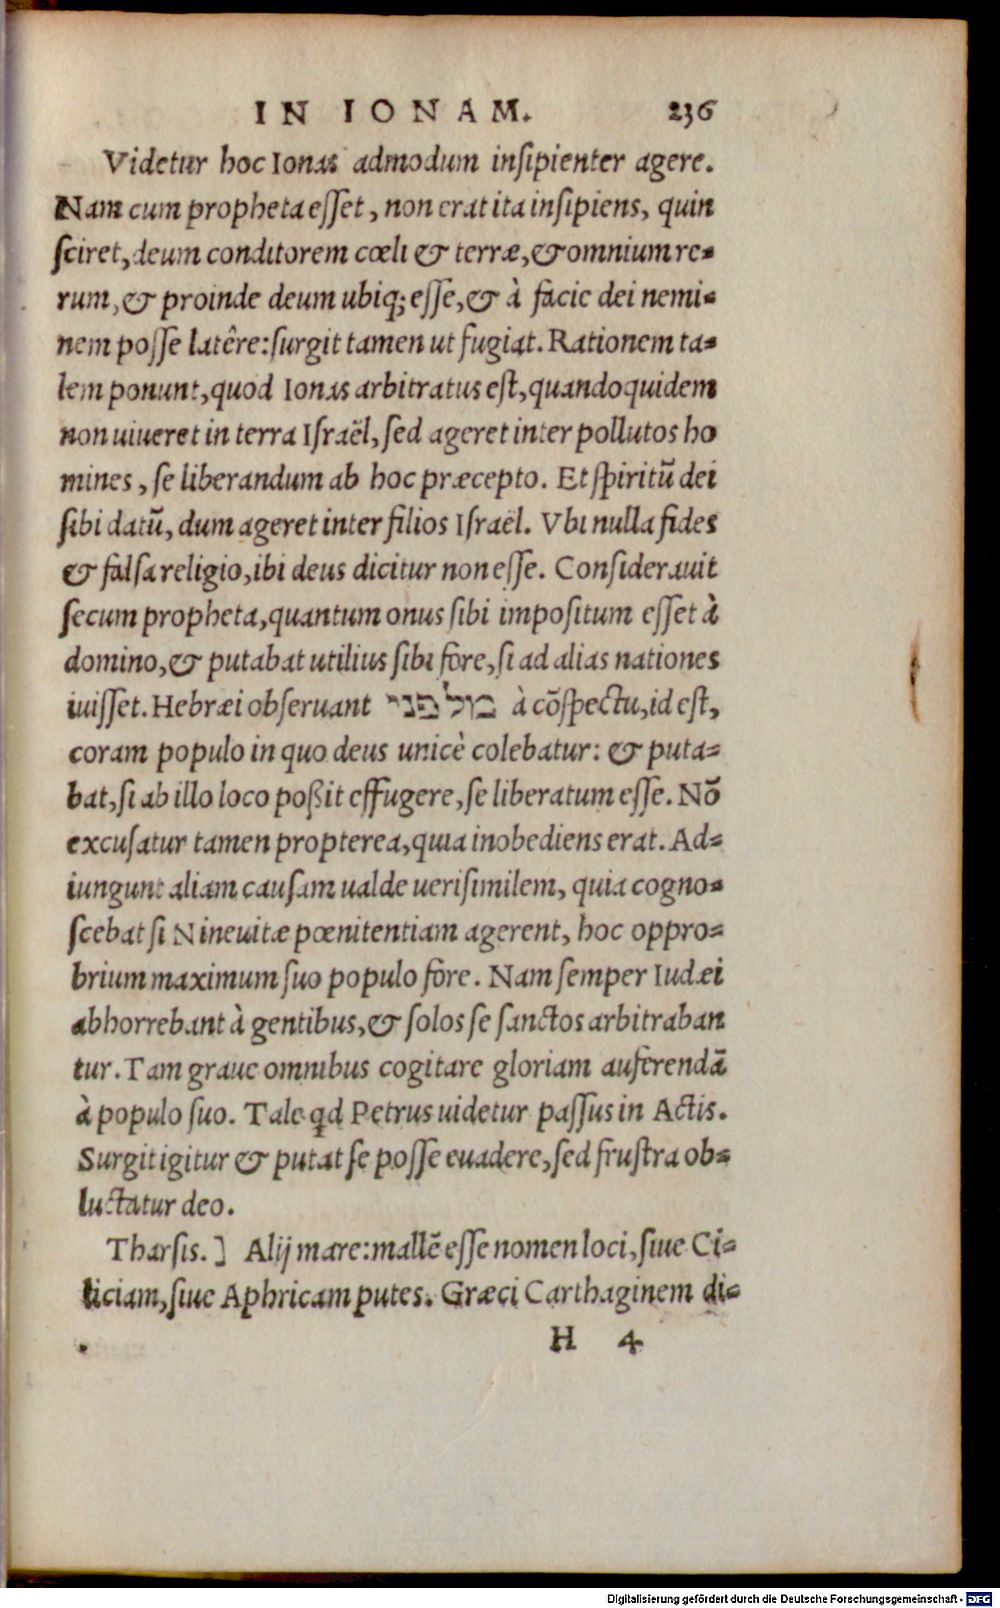 IN IONAM. 236
Videtur hoc Ionas admodum insipienter agere.
Nam cum propheta esset, non erat ita insipiens, quin
sciret, deum conditorem cœli & terræ, & omnium re-
rum, & proinde deum ubiq; esse, & à facie dei nemi-
nem posse latêre: surgit tamen ut fugiat. Rationem ta-
lem ponunt, quod Ionas arbitratus est, quandoquidem
non uiueret in terra Israël, sed ageret inter pollutos ho
mines, se liberandum ab hoc præcepto. Et spiritũ dei
sibi datũ, dum ageret inter filios Israël. Vbi nulla fides
& falsa religio, ibi deus dicitur non esse. Considerauit
secum propheta, quantum onus sibi impositum esset à
domino, & putabat utilius sibi fore, si ad alias nationes
iuisset. Hebræi obseruant מול פני à cõspectu, id est,
coram populo in quo deus unicè colebatur: & puta-
bat, si ab illo loco poßit effugere, se liberatum esse. Nõ
excusatur tamen propterea, quia inobediens erat. Ad-
iungunt aliam causam ualde uerisimilem, quia cogno-
scebat si Nineuitæ pœnitentiam agerent, hoc oppro-
brium maximum suo populo fore. Nam semper Iudæi
abhorrebant à gentibus, & solos se sanctos arbitraban
tur. Tam graue omnibus cogitare gloriam auferendã
à populo suo. Tale qd Petrus uidetur passus in Actis.
Surgit igitur & putat se posse euadere, sed frustra ob-
luctatur deo.
Tharsis.] Alij mare: mallẽ esse nomen loci, siue Ci-
liciam, siue Aphricam putes. Græci Carthaginem di-
H 4
Digitalisierung gefördert durch die Deutsche Forschungsgemeinschaft - DFG